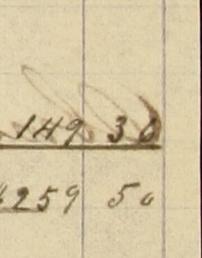 149 30
259 50